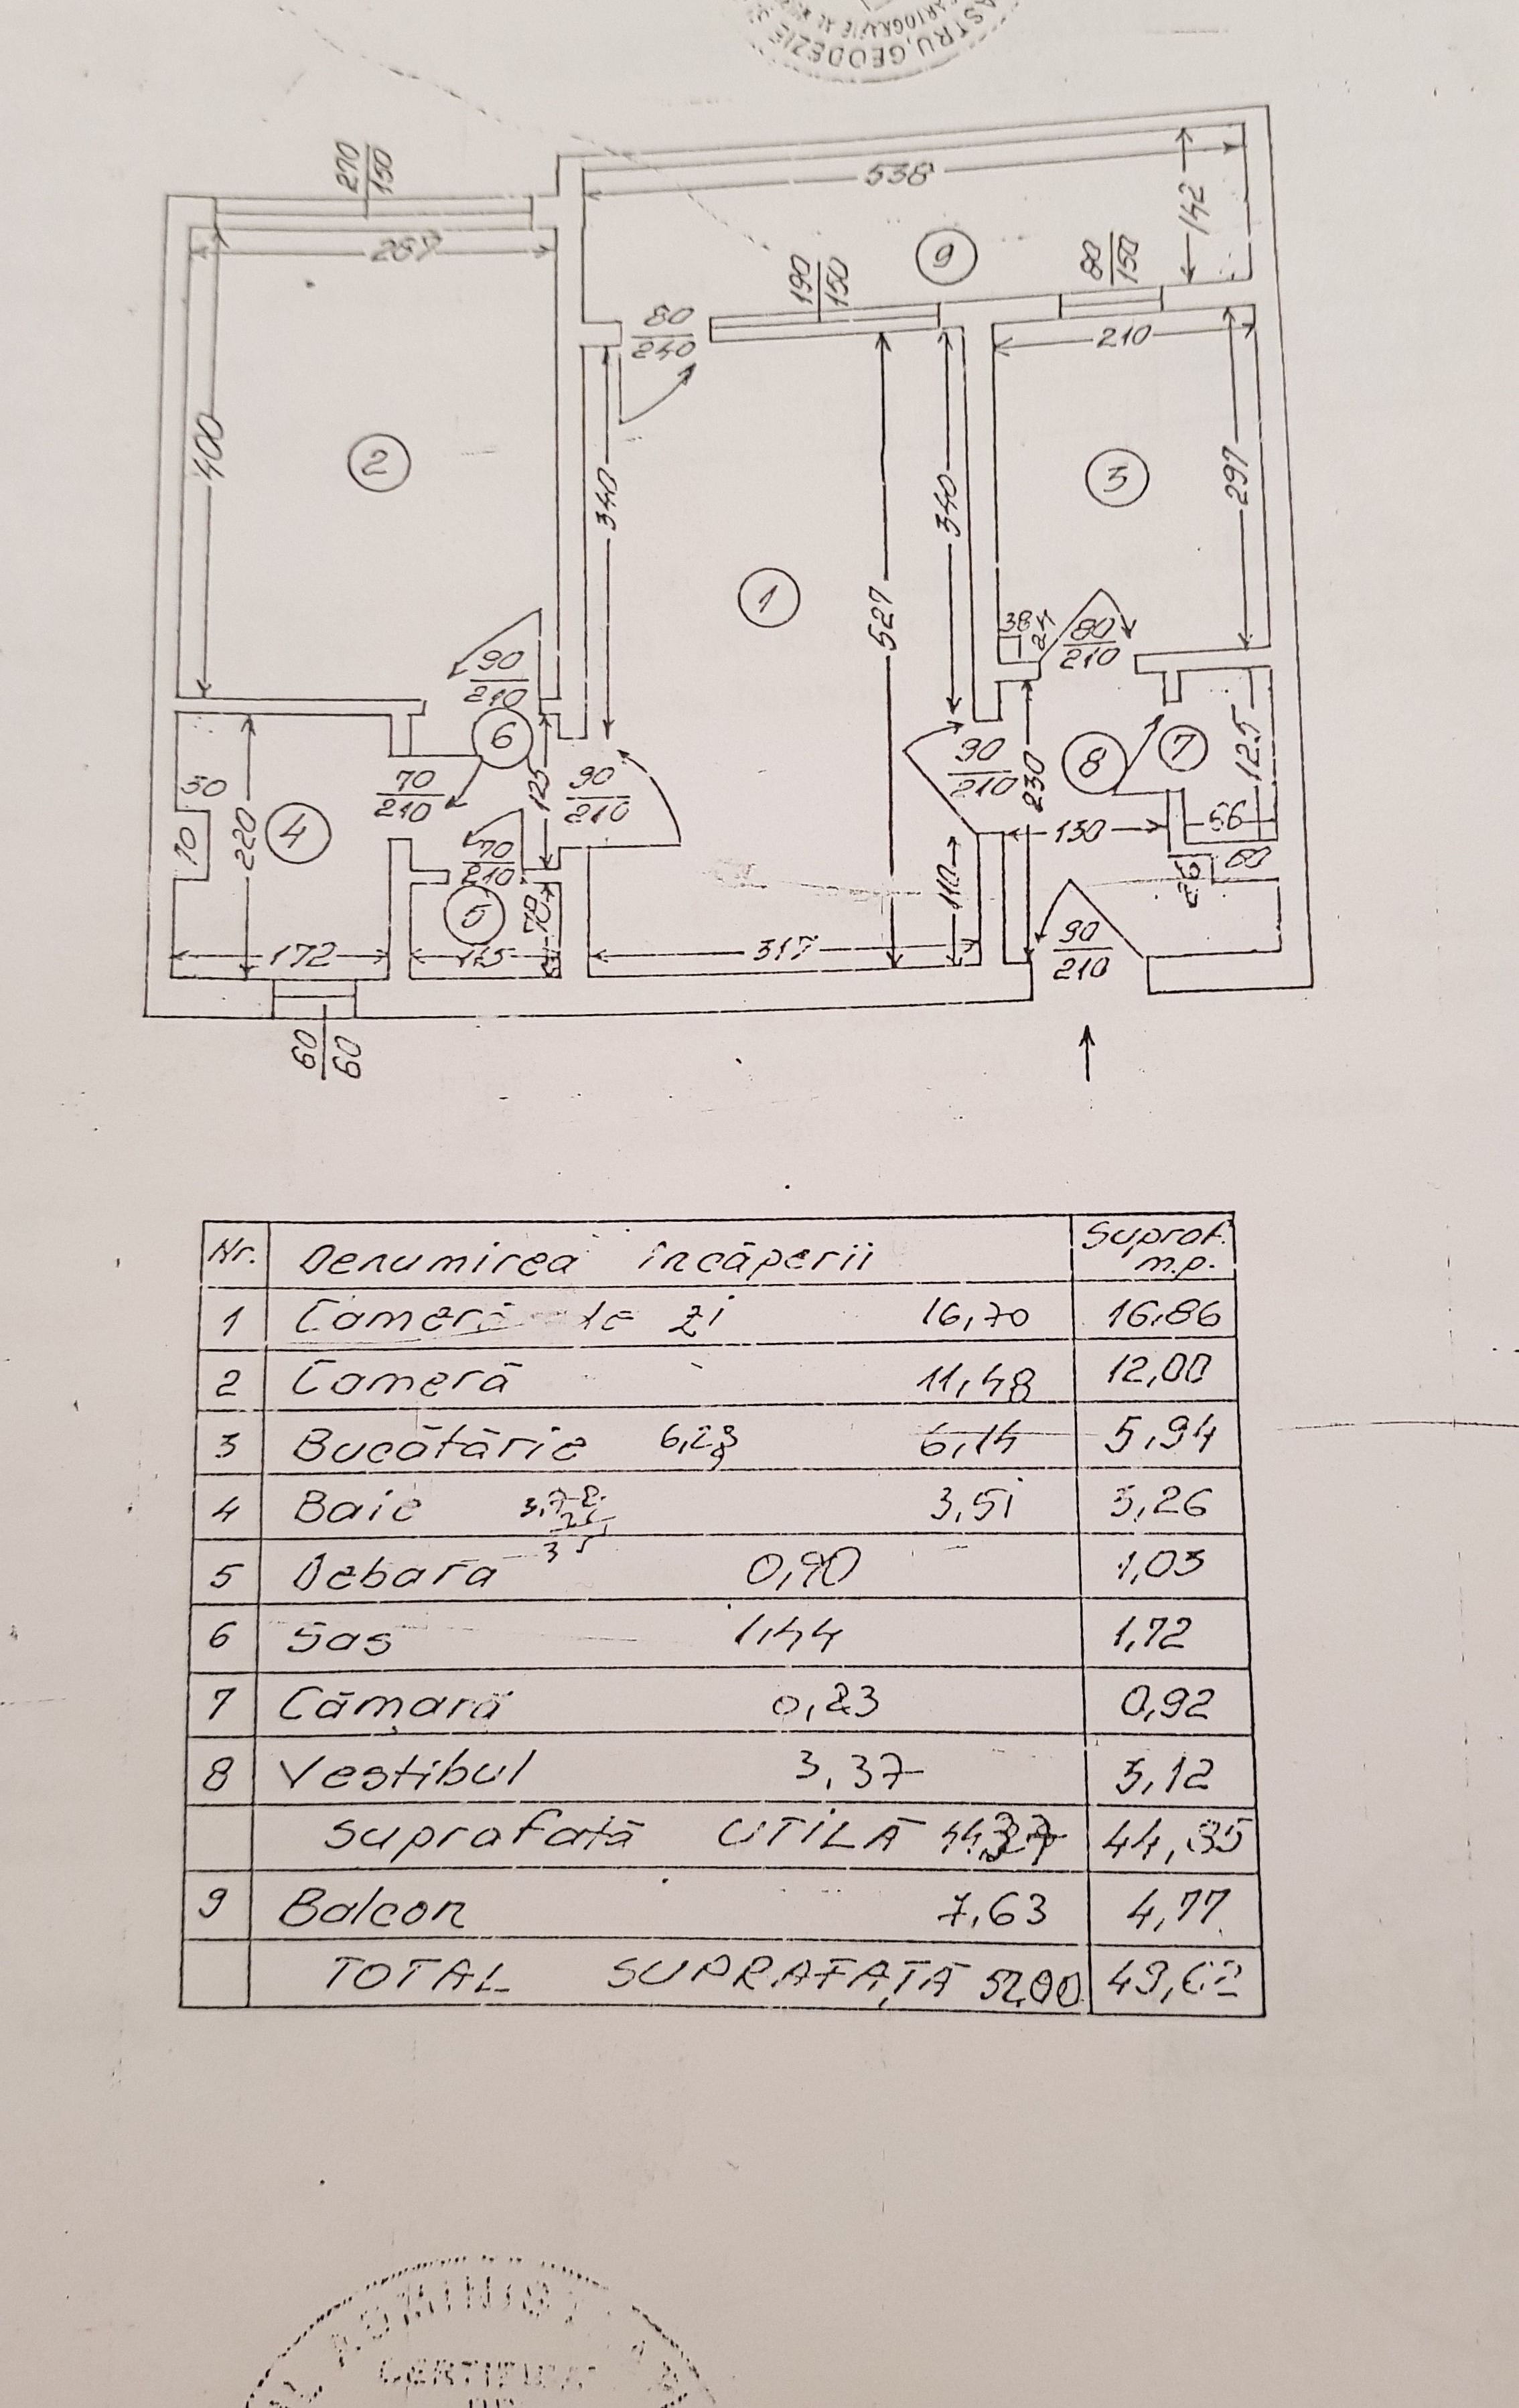 ASTRU, GEODEZIE SI
CARTOGRAFIE AL
538
270
150
142
287
9
190
150
80
150
80
240
210
400
2
340
340
3
297
1
527
38
24
80
210
90
210
6
90
210
8
7
125
230
50
70
210
125
90
210
10
220
4
70
210
130
56
60
26
110
5
70
172
125
317
90
210
60
60
Nr. Denumirea încăperii Supraf. m.p.
1 Cameră de zi 16,70 16,86
2 Cameră 11,48 12,00
3 Bucătărie 6,23 6,14 5,94
4 Baie 3,51 3,26
5 Debara 0,90 1,03
6 Sas 1,44 1,72
7 Cămară 0,23 0,92
8 Vestibul 3,37 3,12
suprafată UTILĂ 44,37 44,85
9 Balcon 7,63 4,77
TOTAL SUPRAFAȚĂ 52,00 49,62
CERTIFICAT